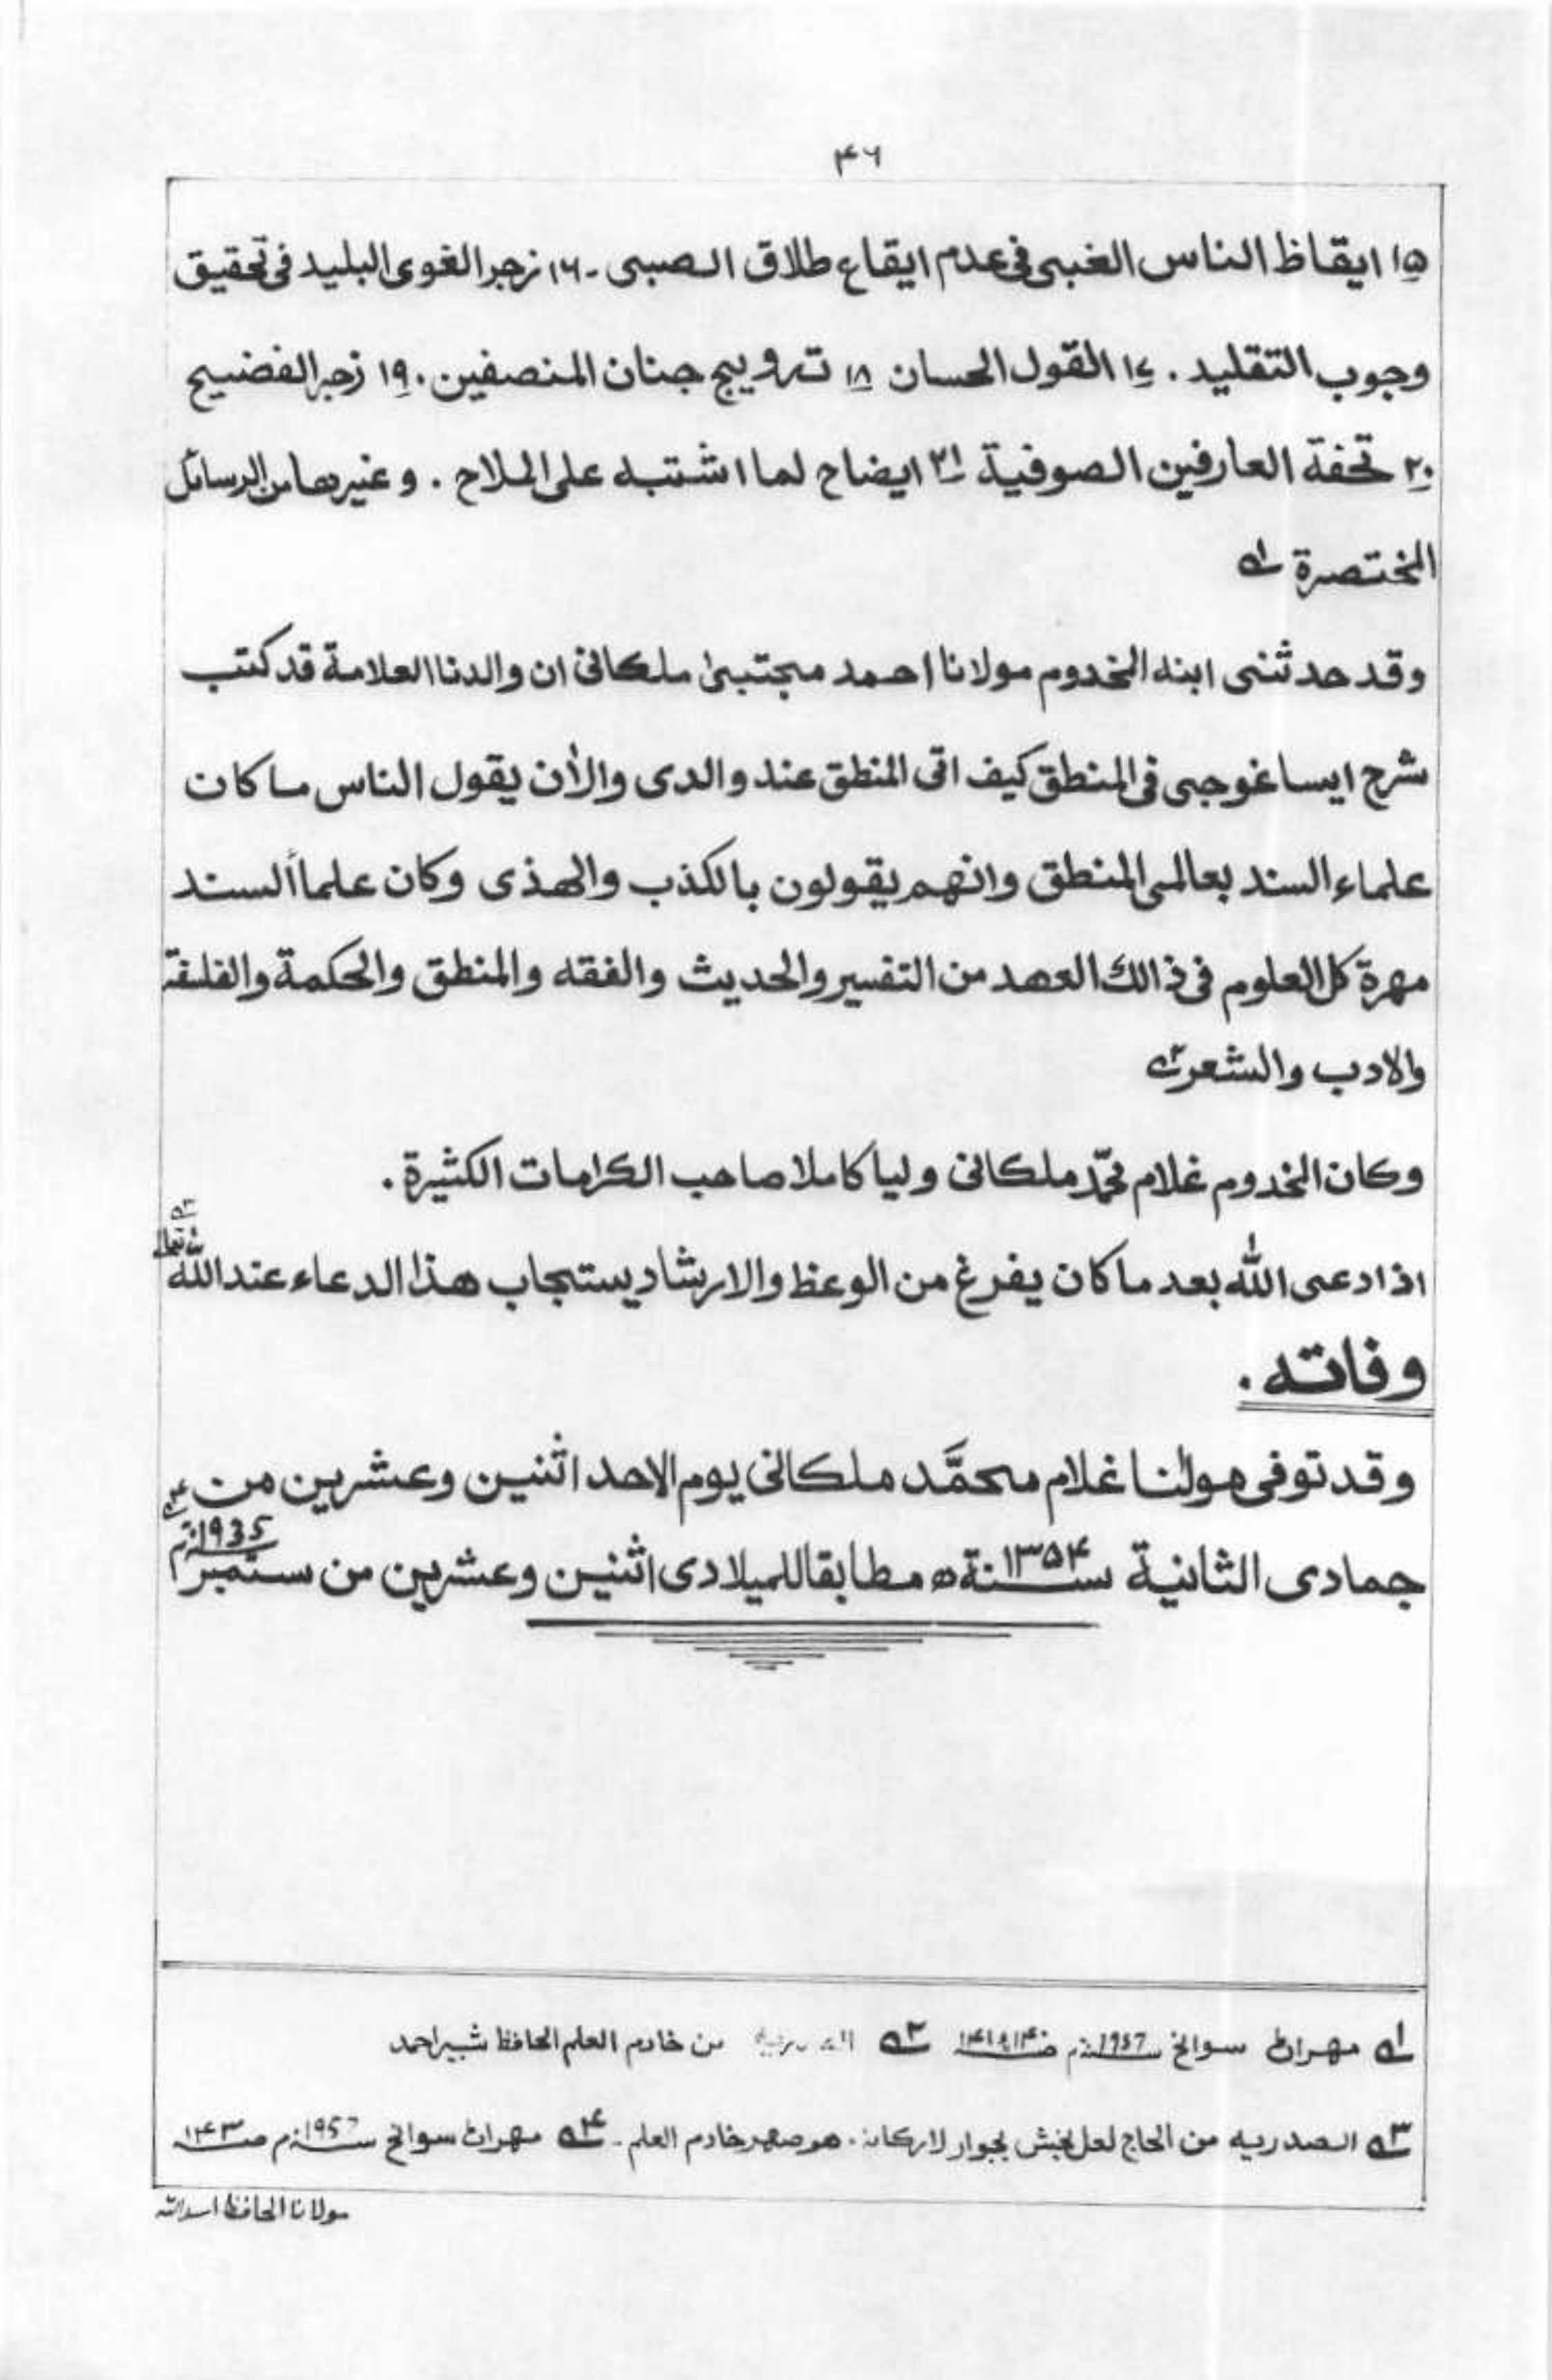 ۴۶
۱۵ ایقاظ الناس الغبی فی عدم ایقاع طلاق الصبی ۔ ۱۶ زجر الغوی البلید فی تحقیق
وجوب التقلید . ۱۷ القول الحسان ۱۸ ترویج جنان المنصفین . ۱۹ زجر الفضیح
۲۰ تحفة العارفین الصوفیة ۲۱ ایضاح لما اشتبه علی الملاح . وغیرها من الرسائل
المختصرة ۱ے
وقد حدثنی ابنه المخدوم مولانا احمد مجتبیٰ ملکانی ان والدنا العلامة قد کتب
شرح ایساغوجی فی المنطق کیف اتی المنطق عند والدی والاٰن یقول الناس ما کان
علماء السند بعالمی المنطق وانهم یقولون بالکذب والهذی وکان علماأ السند
مهرة کل العلوم فی ذالك العهد من التفسیر والحدیث والفقه والمنطق والحکمة والفلسفة
والادب والشعر ۲ے
وکان المخدوم غلام محمّد ملکانی ولیا کاملا صاحب الکرامات الکثیرة .
اذا دعی الله بعد ما کان یفرغ من الوعظ والارشاد یستجاب هذا الدعاء عند الله تعالی ۳ے
وفاته .
وقد توفی مولٰنا غلام محمَّد ملکانی یوم الاحد اثنین وعشرین من ۴ے
جمادی الثانیة سنة ۱۳۵۴ھ مطابقا للمیلادی اثنین وعشرین من ستمبر 1935م
۱ے مهران سوانح 1957م ۲ے من خادم العلم الحافظ شبیر احمد
۳ے الصدریه من الحاج لعل بخش بجوار لارکانه . هو صهر خادم العلم ۔ ۴ے مهران سوانح سنة 1957م صـ ۱۴۳
مولانا الحافظ اسدالله